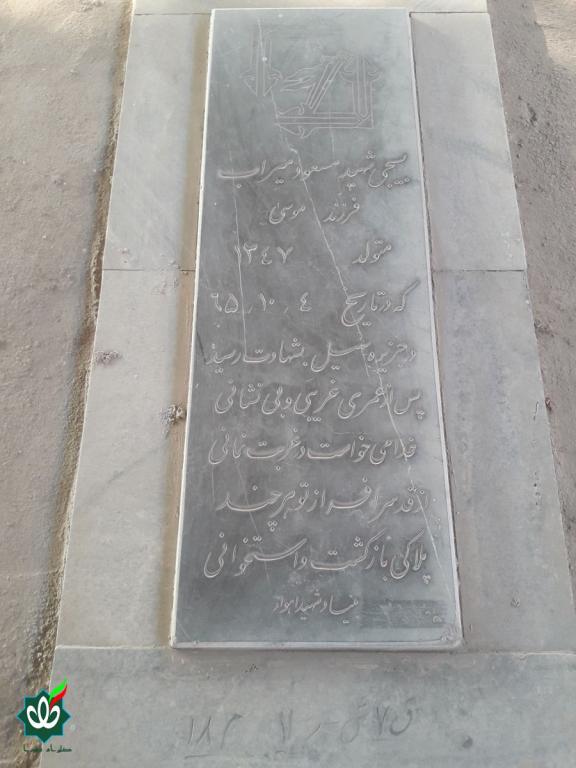 بسیجی شهید مسعود میراب
فرزند موسی
متولد ۱۳٤۷
که در تاریخ ٤ ، ۱۰ ، ٦۵
در جزیره سهیل بشهادت رسید
پس از عمری غریبی و بی نشانی
خدا می خواست در غربت نمانی
از قد سرو فراز تو هر چند
پلاکی باز گشت و استخوانی
بنیاد شهید اهواز
ق ۷ ش ر ۷ م ۱۸